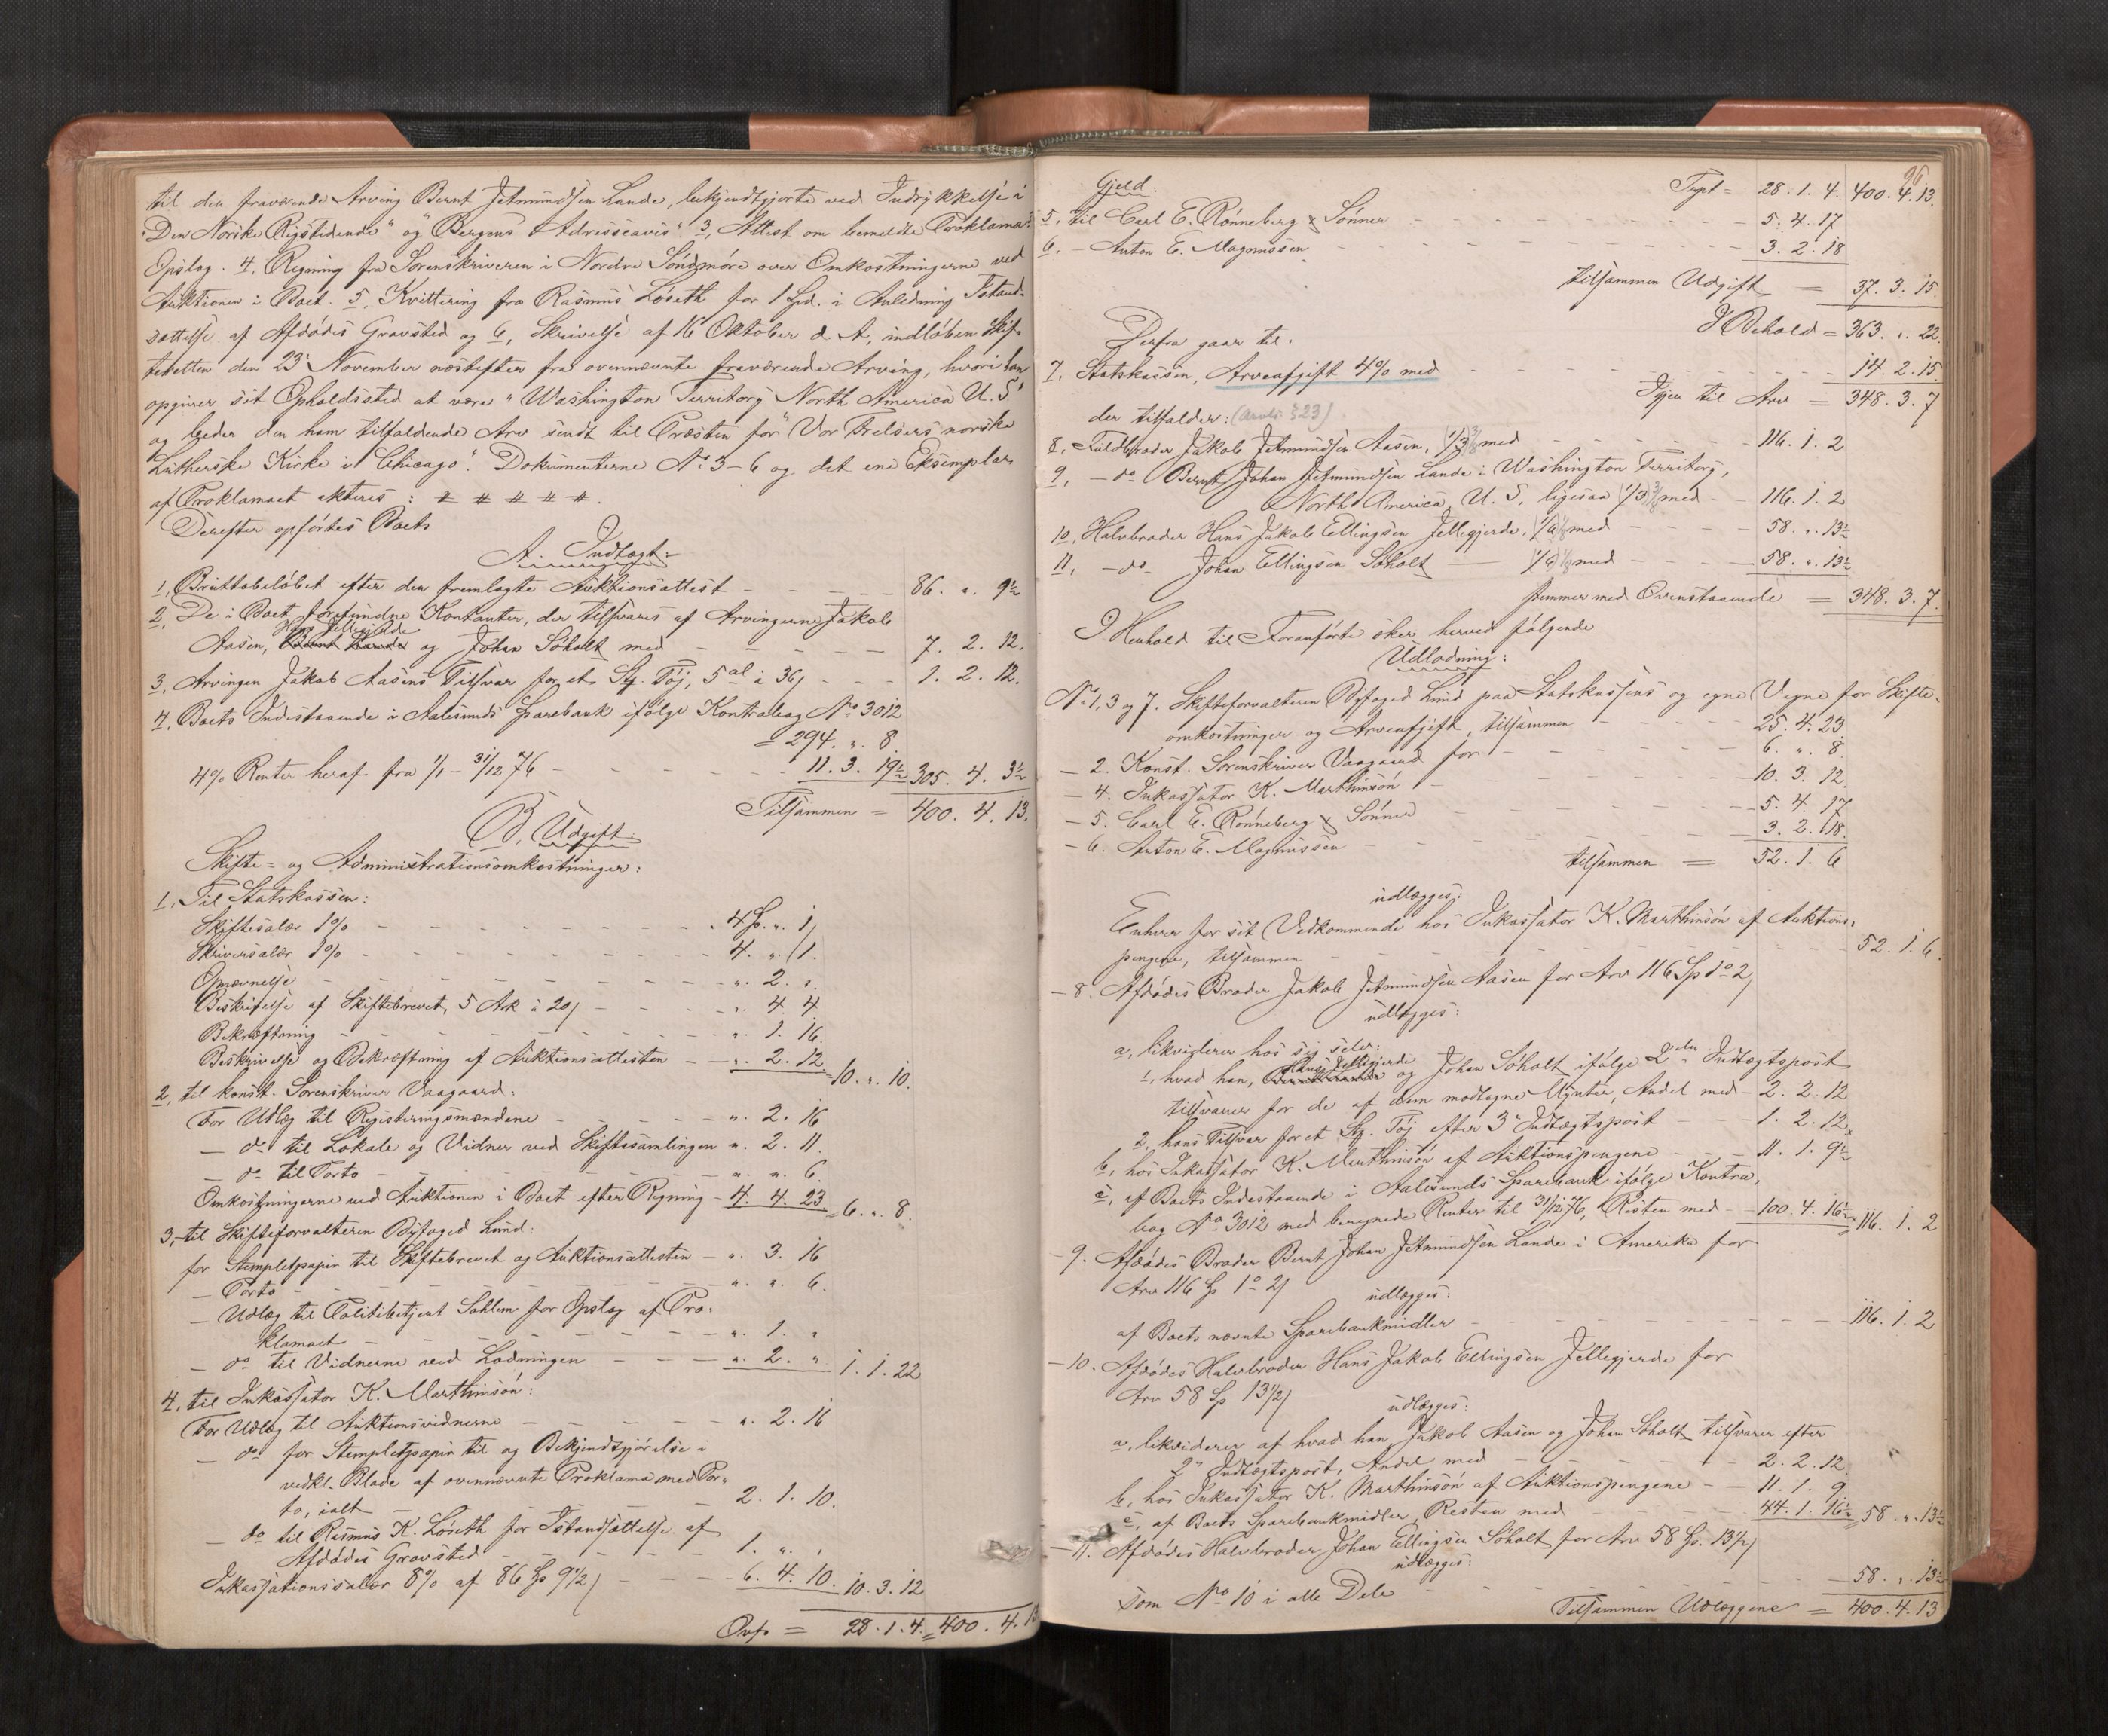 til den fraværende Arving Bernt Jetmundsen Lande, bekjendtgjorte ved Indrykkelse i
"Den Norske Rigstidende" og "Bergens Adresseavis". 3, Attest om bemeldte Proklamas
Opslag. 4, Regning fra Sorenskriveren i Nordre Söndmöre over Omkostningerne ved
Auktionen i Boet. 5, Kvittering fra Rasmus Löseth for 1 Spd. i Anledning Istand-
sættelse af Afdödes Gravsted og 6, Skrivelse af 16 Oktober d. A., indlöben Skif-
teretten den 23 November næstefter fra ovennævnte fraværende Arving, hvori han
opgiver sit Opholdssted at være "Washington Territory North America U. S"
og beder den ham tilfaldende Arv sendt til Præsten for "Vor Frelsers norske
Lutherske Kirke i Chicago". Dokumenterne No 3-6 og det ene Eksemplar
af Proklamaet akteres: # # # # #.
Derefter opförtes Boets
A. Indtægt.
1, Bruttobelöbet efter den fremlagte Auktionsattest - - - 86. " 9½
2, De i Boet forefundne Kontanter, der tilsvares af Arvingerne Jakob
Hans Jellegjerde
Aasen, Bernt Lande og Johan Söholt med - - - 7. 2. 12.
3, Arvingen Jakob Aasens Tilsvar for et Stk. Töj, 5 al à 36 - - - 1. 2. 12.
4, Boets Indestaaende i Aalesunds Sparebank ifölge Kontrabog No 3012
= 294. " 8.
4% Renter heraf fra 1/1 - 31/12 76 - - - 11. 3. 19½ 305. 4. 3½
Tilsammen = 400. 4. 13.
B. Udgift.
Skifte- og Administrationsomkostninger:
1, Til Statskassen:
Skiftesalær 1% - - - 4 Sp. " 1
Skriversalær 1% - - - 4. " 1.
Opnævnelse - - - " 2. "
Beskrivelse af Skiftebrevet, 5 Ark à 20 - - - " 4. 4.
Bekræftning - - - " 1. 16.
Beskrivelse og Bekræftning af Auktionsattesten - - " 2. 12 = 10. " 10.
2, til konst. Sorenskriver Vaagaard:
For Udlæg til Registeringsmændene - - - " 2. 16
- do til Lokale og Vidner ved Skiftesamlingen " 2. 11.
- do til Porto - - - " " 6.
Omkostningerne ved Auktionen i Boet efter Regning - 4. 4. 23 = 6. " 8.
3, til Skifteforvalteren Byfoged Lund:
for Stempletpapir til Skiftebrevet og Auktionsattesten - " 3. 16
- Porto - - - " " 6.
- Udlæg til Politibetjent Sahlen for Opslag af Pro-
klamaet - - - " 1. "
- do til Vidnerne ved Lodningen - - - " 2. " 1. 1. 22
4, til Inkassator K. Marthinson:
For Udlæg til Auktionsvidnerne - - - " 2. 16
- do for Stempletpapir til og Bekjendtgjörelse i
vedk. Blade af ovennævnte Proklama med Por-
to, ialt - - - 2. 1. 10.
- do til Rasmus K. Löseth for Istandsættelse af
Afdödes Gravsted - - - 1. " "
Inkassationssalær 8% af 86 Sp 9½ - - - 6. 4. 10. 10. 3. 12
Ovf. = 28. 1. 4. = 400. 4. 13
96
Trpt = 28. 1. 4. 400. 4. 13.
Gjeld:
5, til Carl E. Rönneberg & Sönner - - - 5. 4. 17
6, - Anton E. Magnussen - - - 3. 2. 18
tilsammen Udgift = 37. 3. 15.
I Behold = 363. " 22.
Derfra gaar til:
7, Statskassen, Arveafgift 4% med - - - 14. 2. 15.
Igjen til Arv = 348. 3. 7
der tilfalder: (Arvl: § 23)
8, Fuldbroder Jakob Jetmundsen Aasen, 1/3 med - - - 116. 1. 2
9, - do Bernt Johan Jetmundsen Lande i Washington Territory,
North America, U. S, ligesaa 1/3 med - - 116. 1. 2
10, Halvbroder Hans Jakob Ellingsen Jellegjerde, 1/6 med - - - 58. " 13½
11, - do - Johan Ellingsen Söholt - 1/6 med - - - 58. " 13½
stemmer med Ovenstaaende = 348. 3. 7.
I Henhold til Foranförte sker herved fölgende
Udlodning:
No 1, 3 og 7. Skifteforvalteren Byfoged Lund paa Statskassens og egne Vegne for Skifte-
omkostninger og Arveafgift, tilsammen - - - 25. 4. 23
- 2. Konst. Sorenskriver Vaagaard for - - - 6. " 8
- 4. Inkassator K. Marthinson - - - 10. 3. 12.
- 5. Carl E. Rönneberg & Sönner - - - 5. 4. 17
- 6. Anton E. Magnussen - - - 3. 2. 18.
tilsammen = 52. 1. 6
udlægges:
Enhver for sit Vedkommende hos Inkassator K. Marthinson af Auktions-
pengene, tilsammen - - - 52. 1. 6.
- 8. Afdödes Broder Jakob Jetmundsen Aasen for Arv 116 Sp 1o 2
udlægges:
a, likviderer hos sig selv:
Hans Jellegjerde
1, hvad han, Bernt Lande og Johan Söholt ifölge 2den Indtægtspost
tilsvarer for de af dem modtagne Mynter, Andel med - 2. 2. 12
2, hans Tilsvar for et Stk. Töj efter 3 Indtægtspost - - 1. 2. 12.
b, hos Inkassator K. Marthinson af Auktionspengene - - - 11. 1. 9½
c, af Boets Indestaaende i Aalesunds Sparebank ifölge Kontra-
bog No 3012 med beregnede Renter til 31/12 76, Resten med - 100. 4. 16½ = 116. 1. 2
- 9. Afdödes Broder Bernt Johan Jetmundsen Lande i Amerika for
Arv 116 Sp 1o 2
udlægges:
af Boets nævnte Sparebankmidler - - - 116. 1. 2
- 10. Afdödes Halvbroder Hans Jakob Ellingsen Jellegjerde for
Arv 58 Sp 13½
udlægges:
a, likviderer af hvad han, Jakob Aasen og Johan Söholt tilsvarer efter
2 Indtægtspost, Andel med - - - 2. 2. 12.
b, hos Inkassator K. Marthinson af Auktionspengene - - 11. 1. 9
c, af Boets Sparebankmidler, Resten med - - - 44. 1. 16½ = 58. " 13½
- 11. Afdödes Halvbroder Johan Ellingsen Söholt for Arv 58 Sp. 13½
udlægges:
Som No 10 i alle Dele - - - 58. " 13½
Tilsammen Udlæggene = 400. 4. 13